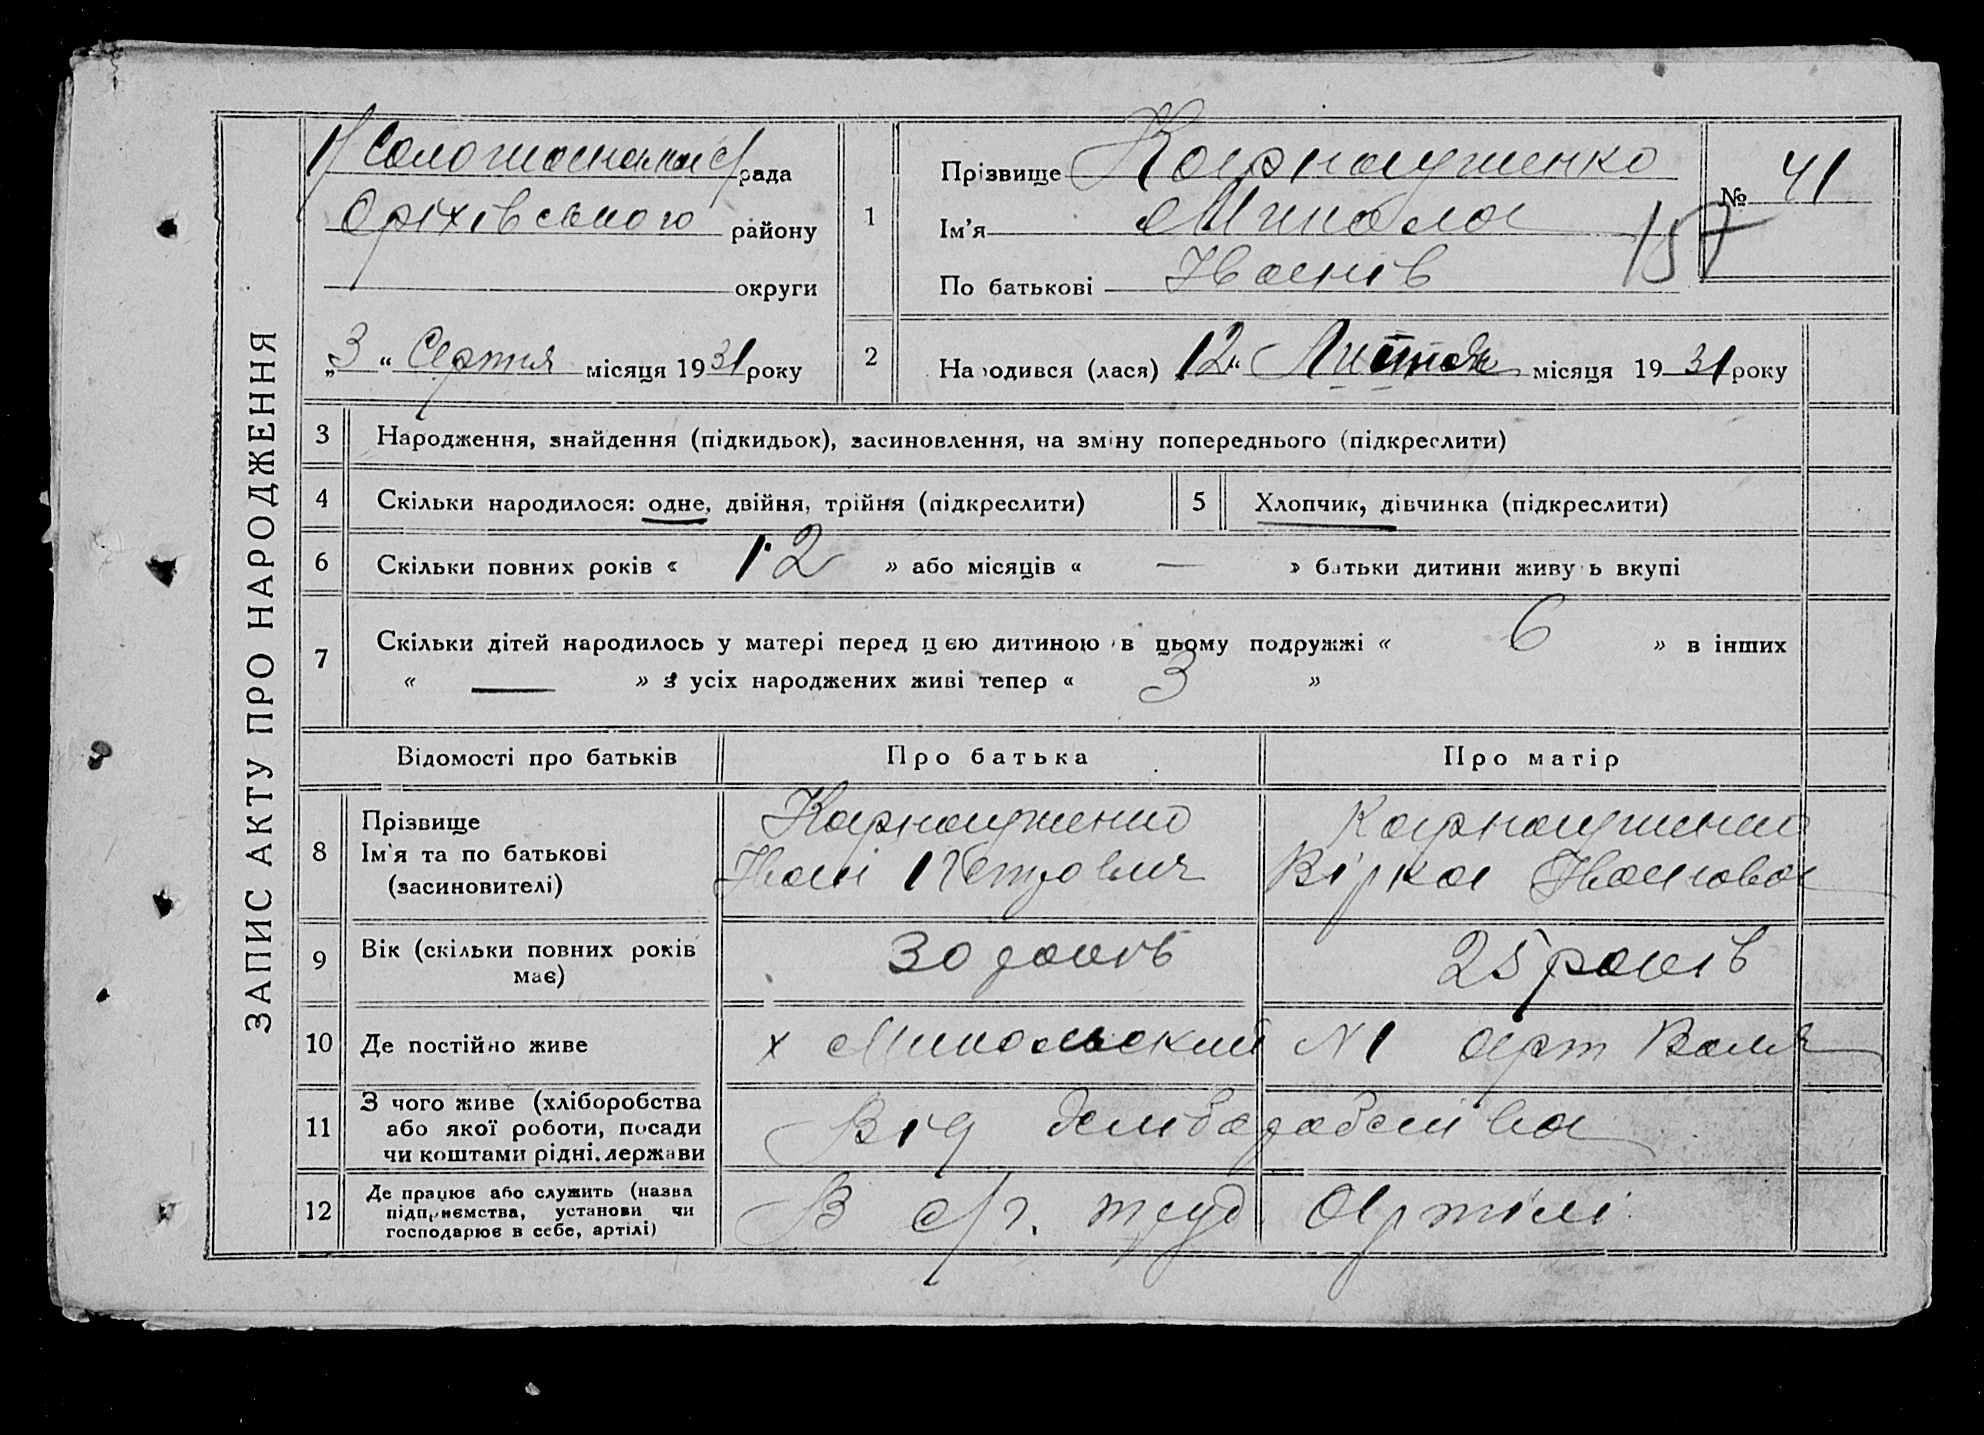 ЗАПИС АКТУ ПРО НАРОДЖЕННЯ
рада
Оріхівського району
округи
„3“ Серпня місяця 1931 року
1
Прізвище Карнаушенко
Ім'я Микола
По батькові Іванів
№ 41
157
2
Народився (лася) 12“ місяця 1931 року
3 Народження, знайдення (підкидьок), засиновлення, на зміну попереднього (підкреслити)
4 Скільки народилося: одне, двійня, трійня (підкреслити)
5 Хлопчик, дівчинка (підкреслити)
6 Скільки повних років « 12 » або місяців « — » батьки дитини живуть вкупі
7 Скільки дітей народилось у матері перед цією дитиною в цьому подружжі « 6 » в інших
« — » з усіх народжених живі тепер « 3 »
Відомості про батьків Про батька Про матір
8 Прізвище
Ім'я та по батькові
(засиновителі)
Карнаушенко
Іван Петрович
Карнаушенко
Вірка Іванова
9 Вік (скільки повних років
має)
30 років
25 років
10 Де постійно живе
х Микольский N 1 арт Воля
11 З чого живе (хліборобства
або якої роботи, посади
чи коштами рідні, держави
Від
12 Де працює або служить (назва
підприємства, установи чи
господарює в себе, артілі)
В с/г. труд. Артілі